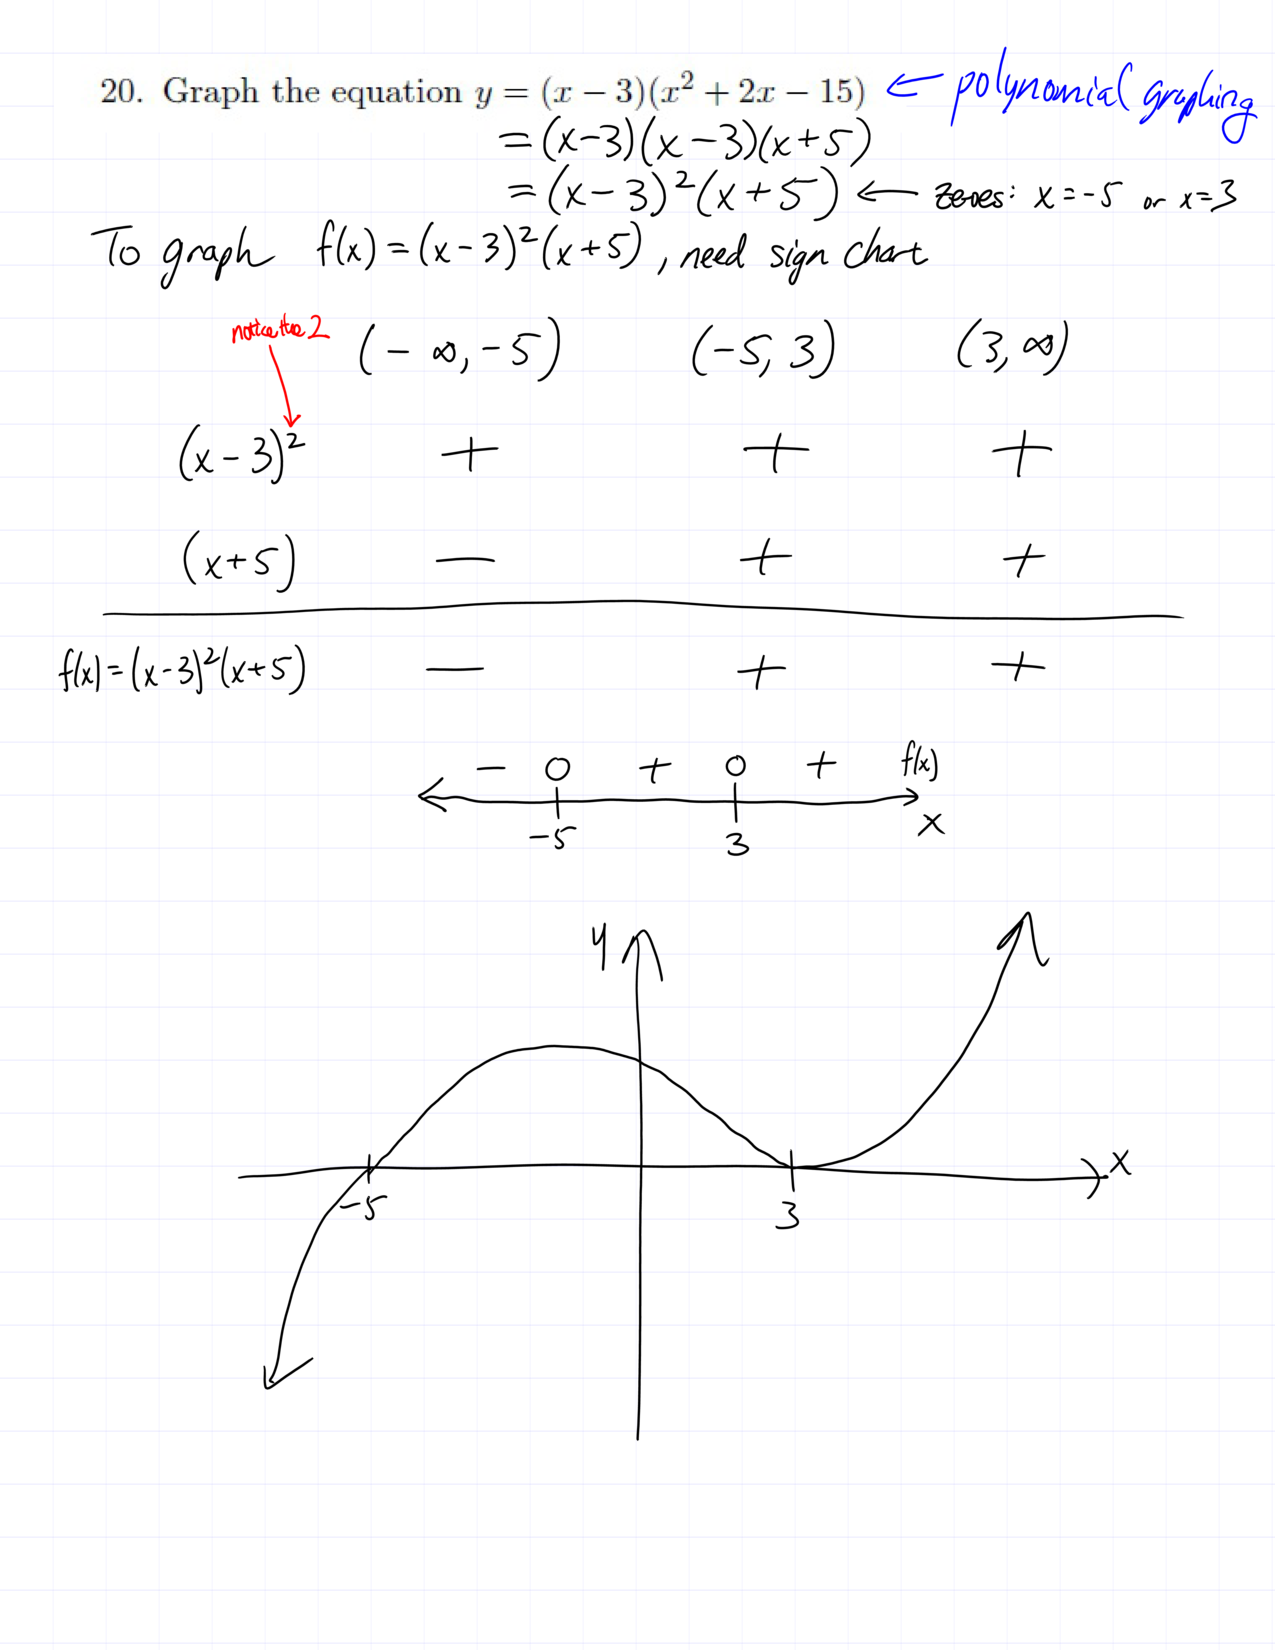 20. Graph the equation y = (x − 3)(x² + 2x − 15) ← polynomial graphing
= (x-3)(x-3)(x+5)
= (x-3)²(x+5) ← zeroes: x = -5 or x = 3
To graph f(x) = (x-3)²(x+5), need sign chart
notice the 2
(-∞, -5) (-5, 3) (3, ∞)
(x-3)² + + +
(x+5) − + +
f(x) = (x-3)²(x+5) − + +
− 0 + 0 + f(x)
-5 3 x
y
x
-5 3